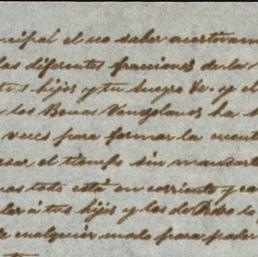 ncipal el no saber acertivam
las diferentes fracciones de la
tus hijos y tu Suegro Ver. y el
los Bonos Venezolanos ha
veces para formar la cuenta
sar el tiempo sin mandart
mas todo está en corriente y ca
dar á tus hijos y los de
cualquier modo para poder